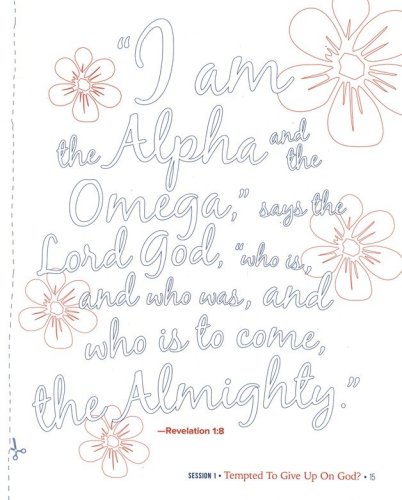 “I am
the Alpha and the
Omega,” says the
Lord God, “who is,
and who was, and
who is to come,
the Almighty.”
—Revelation 1:8
SESSION 1 • Tempted To Give Up On God? • 15